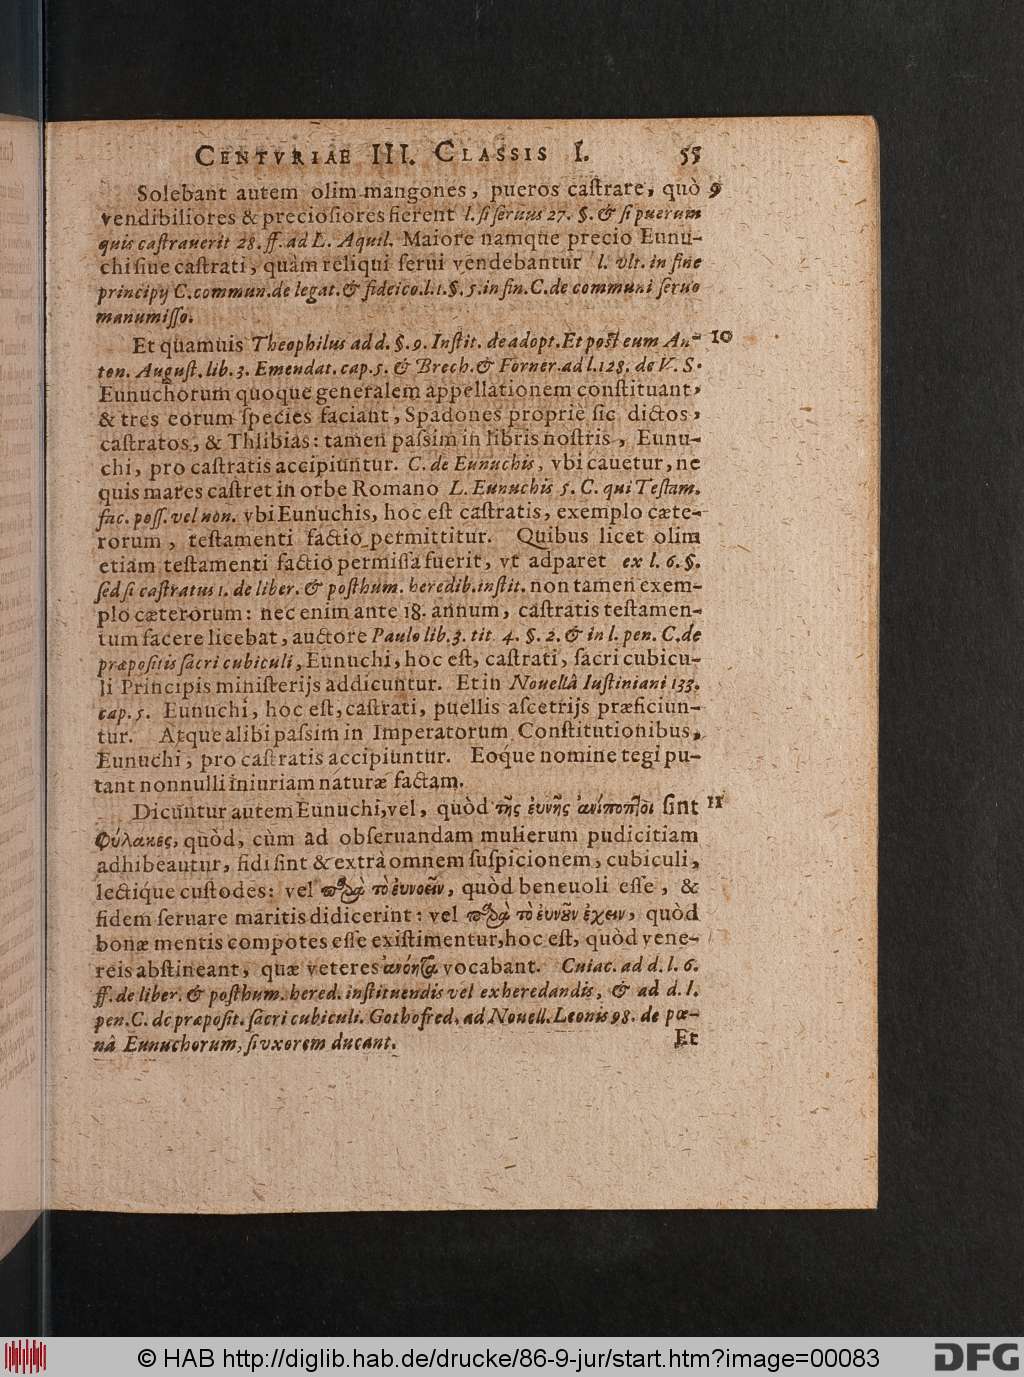 CENTVRIAE III. CLASSIS I. 55
Solebant autem olim mangones, pueros caſtrare, quò 9
vendibiliores & precioſiores fierent l. ſi ſeruus 27. §. & ſi puerum
quis caſtrauerit 28. ff. ad L. Aquil. Maiore namque precio Eunu-
chi ſiue caſtrati, quàm reliqui ſerui vendebantur l. vlt. in fine
principij C. commun. de legat. & fideico. l. 1. §. 5. in fin. C. de communi ſeruo
manumiſſo.
Et quamuis Theophilus ad d. §. 9. Inſtit. de adopt. Et poſt eum An- 10
ton. Auguſt. lib. 3. Emendat. cap. 5. & Brech. & Forner. ad l. 128. de V. S.
Eunuchorum quoque generalem appellationem conſtituant,
& tres eorum ſpecies faciant, Spadones propriè ſic dictos,
caſtratos, & Thlibias: tamen paſsim in libris noſtris, Eunu-
chi, pro caſtratis accipiuntur. C. de Eunuchis, vbi cauetur, ne
quis mares caſtret in orbe Romano L. Eunuchis 5. C. qui Teſtam.
fac. poſſ. vel non. vbi Eunuchis, hoc eſt caſtratis, exemplo cæte-
rorum, teſtamenti factio permittitur. Quibus licet olim
etiam teſtamenti factio permiſſa fuerit, vt adparet ex l. 6. §.
ſed ſi caſtratus 1. de liber. & poſthum. heredib. inſtit. non tamen exem-
plo cæterorum: nec enim ante 18. annum, caſtratis teſtamen-
tum facere licebat, auctore Paulo lib. 3. tit. 4. §. 2. & in l. pen. C. de
præpoſitis ſacri cubiculi, Eunuchi, hoc eſt, caſtrati, ſacri cubicu-
li Principis miniſterijs addicuntur. Et in Nouellâ Iuſtiniani 133.
cap. 5. Eunuchi, hoc eſt, caſtrati, puellis aſcetrijs præficiun-
tur. Atque alibi paſsim in Imperatorum Conſtitutionibus,
Eunuchi, pro caſtratis accipiuntur. Eoq́ue nomine tegi pu-
tant nonnulli iniuriam naturæ factam.
Dicuntur autem Eunuchi, vel, quòd τῆς ἐυνῆς ſint 11
φύλακες, quòd, cùm ad obſeruandam mulierum pudicitiam
adhibeautur, fidi ſint & extrà omnem ſuſpicionem, cubiculi,
lectiq́ue cuſtodes: vel παρὰ τὸ ἐυνοεῖν, quòd beneuoli eſſe, &
fidem ſeruare maritis didicerint: vel παρὰ τὸ ἐυνοῦν ἔχειν, quòd
bonæ mentis compotes eſſe exiſtimentur, hoc eſt, quòd vene-
reis abſtineant, quæ veteres ἀνόητα vocabant. Cuiac. ad d. l. 6.
ff. de liber. & poſthum. hered. inſtituendis vel exheredandis, & ad d. l.
pen. C. de præpoſit. ſacri cubiculi. Gothofred. ad Nouell. Leonis 98. de pœ-
nâ Eunuchorum, ſi vxorem ducant. Et
© HAB http://diglib.hab.de/drucke/86-9-jur/start.htm?image=00083 DFG